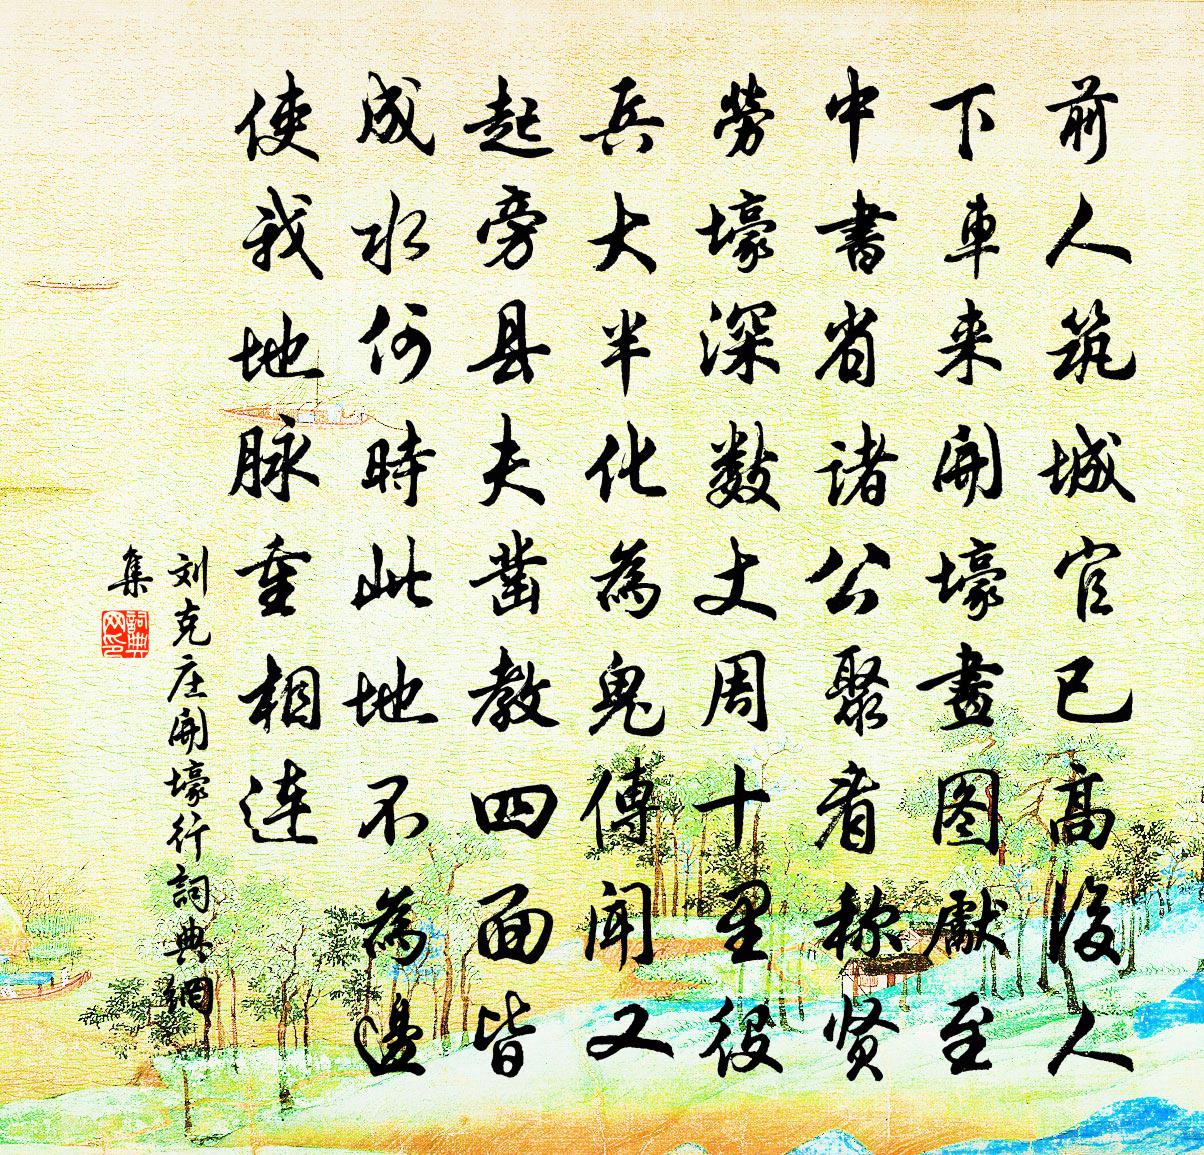 前人筑城官已高後人
下車来開壕畫图獻至
中書省诸公聚看称贤
勞壕深数丈周十里役
兵大半化為鬼傳聞又
起旁县夫凿教四面皆
成水何時此地不為邊
使我地脉重相連
刘克庄開壕行詞典網
集
詞典
网印